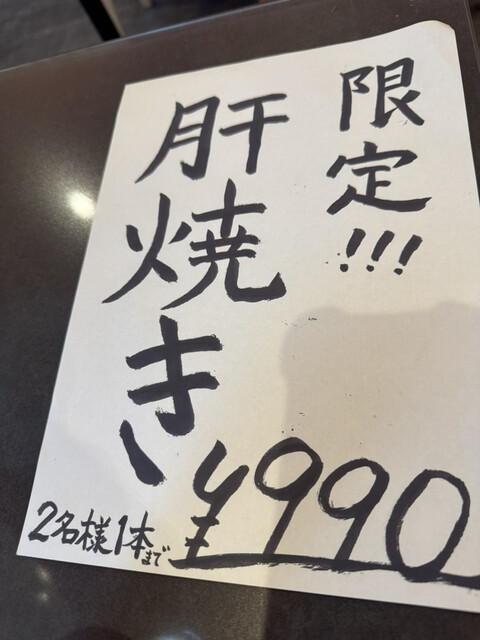 限定!!!
肝焼き
¥990
2名様1本まで